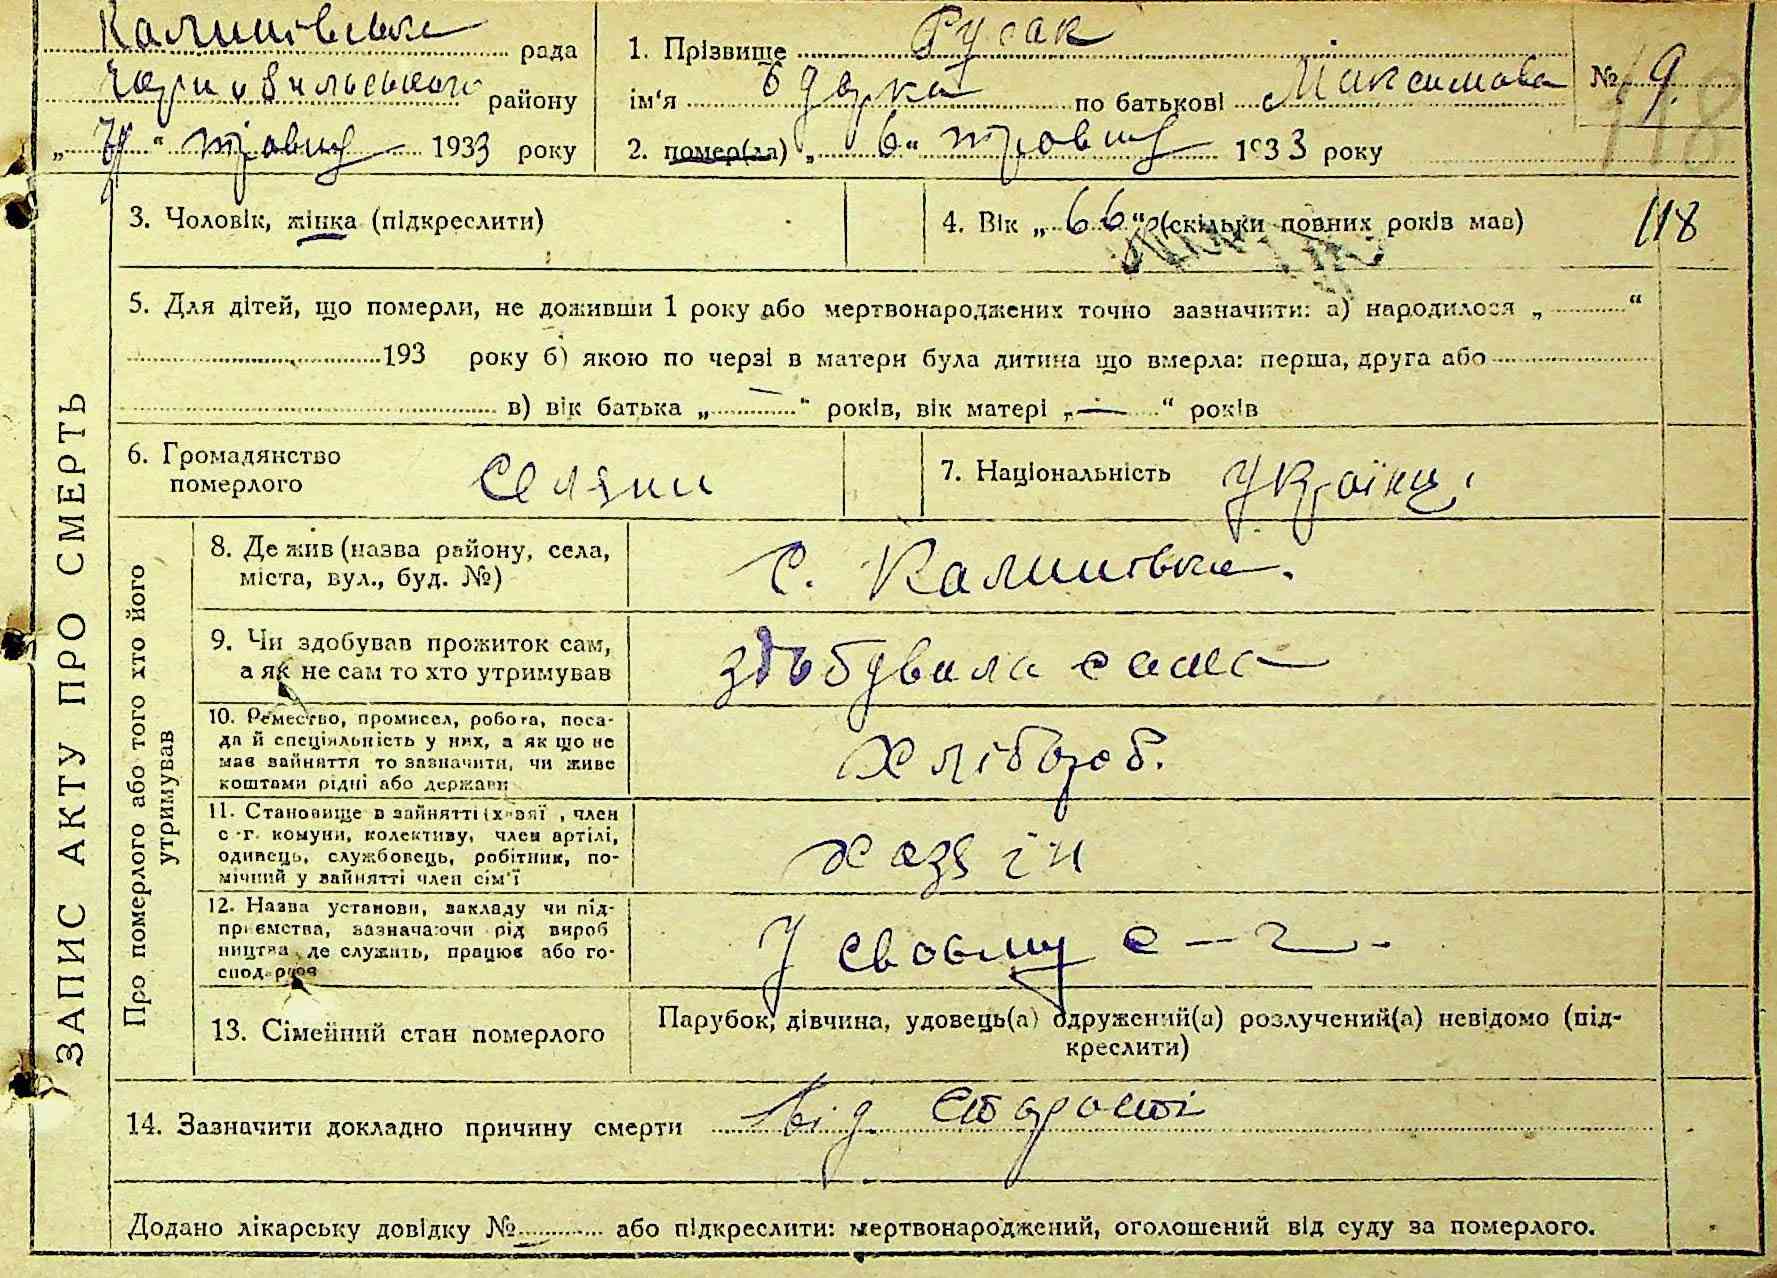 Калинівська рада
району
„ “ травня 1933 року
1. Прізвище Русак
ім'я Одарка по батькові Максимова
№ 9.
118
2. помер(ла) „ 6 “ травня 1933 року
3. Чоловік, жінка (підкреслити)
4. Вік „ 66 “ (скільки повних років мав)
118
5. Для дітей, що померли, не доживши 1 року або мертвонароджених точно зазначити: а) народилося „ “
193 року б) якою по черзі в матери була дитина що вмерла: перша, друга або
в) вік батька „ — “ років, вік матері „ — “ років
6. Громадянство
померлого
Селяни
7. Національність Українц.
ЗАПИС АКТУ ПРО СМЕРТЬ
Про померлого або того хто його
утримував
8. Де жив (назва району, села,
міста, вул., буд. №)
с. Калинівка.
9. Чи здобував прожиток сам,
а як не сам то хто утримував
здобувала сама
10. Ремество, промисел, робота, поса-
да й спеціяльність у них, а як що не
мав зайняття то зазначити, чи живе
коштами рідні або держави
Хлібороб.
11. Становище в зайнятті (х зяї , член
с-г. комуни, колективу, член артілі,
одинець, службовець, робітник, по-
мічний у зайнятті член сім'ї
хазяїн
12. Назва установи, закладу чи під-
приємства, зазначаючи рід вироб
ництва де служить, працює або го-
сподарює
У своєму с-г.
13. Сімейний стан померлого
Парубок, дівчина, удовець(а) одружений(а) розлучений(а) невідомо (під-
креслити)
14. Зазначити докладно причину смерти від старості
Додано лікарську довідку № або підкреслити: мертвонароджений, оголошений від суду за померлого.